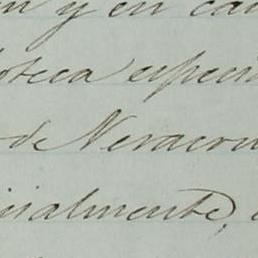 n y en ca
oteca especi
de Veracru
cialmente,